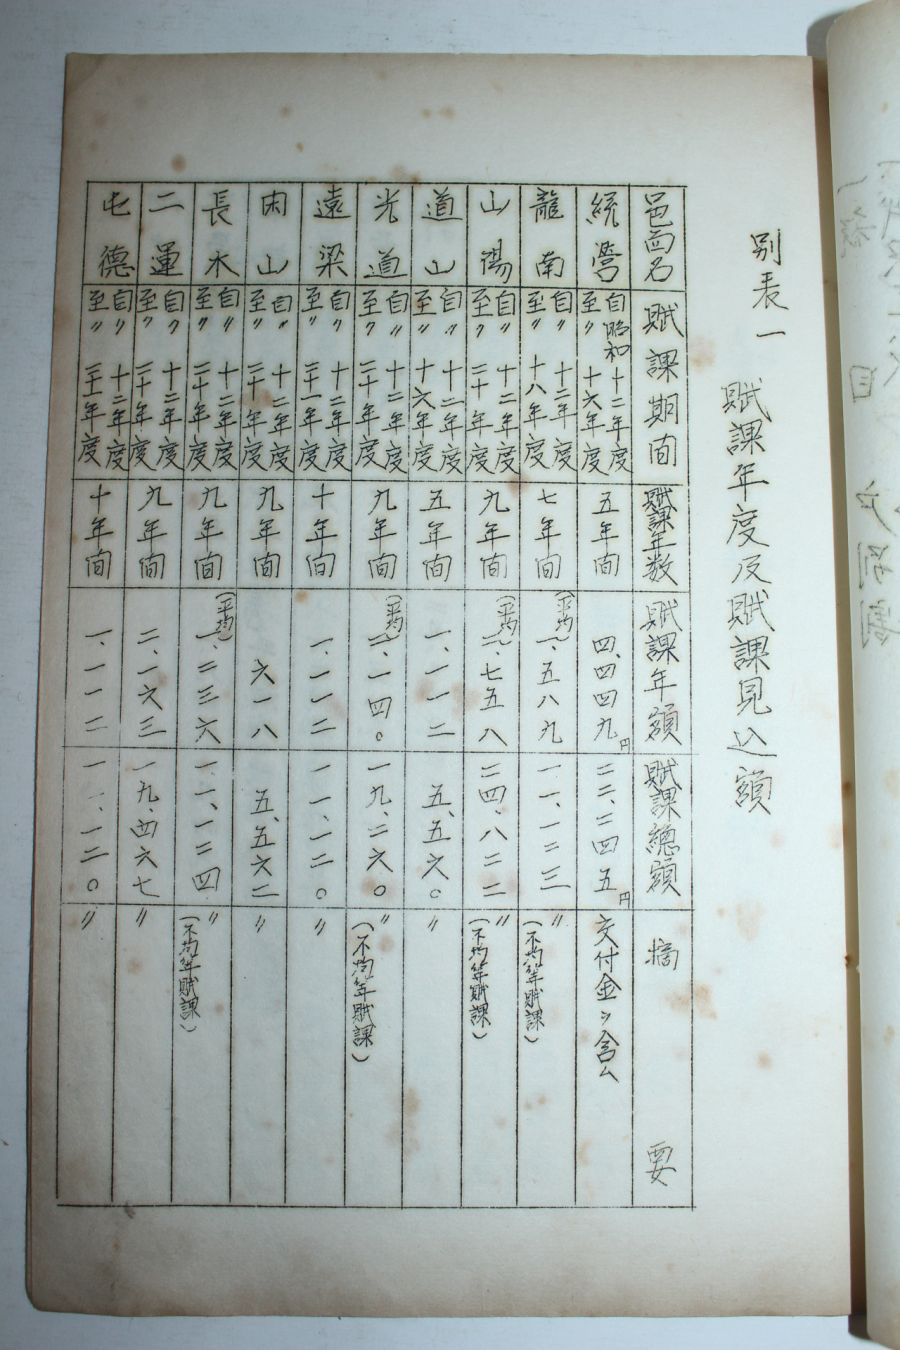 別表一
賦課年度及賦課見込額
邑面名 賦課期間 賦課年数 賦課年額 賦課總額 摘要
統営 自昭和十二年度 至〃十六年度 五年間 四、四四九円 二二、二四五円 交付金ヲ含ム
龍南 自〃十二年度 至〃十八年度 七年間 (平均)一、五八九 一一、一二三 〃(不均等賦課)
山陽 自〃十二年度 至〃二十年度 九年間 (平均)二、七五八 二四、八二二 〃(不均等賦課)
道山 自〃十二年度 至〃十六年度 五年間 一、一一二 五、五六〇 〃
光道 自〃十二年度 至〃二十年度 九年間 (平均)二、一四〇 一九、二六〇 〃(不均等賦課)
遠梁 自〃十二年度 至〃二十一年度 十年間 一、一一二 一一、一二〇 〃
閑山 自〃十二年度 至〃二十年度 九年間 六一八 五、五六二 〃
長木 自〃十二年度 至〃二十年度 九年間 (平均)一、二三六 一一、一二四 〃(不均等賦課)
二運 自〃十二年度 至〃二十年度 九年間 二、一六三 一九、四六七 〃
屯德 自〃十二年度 至〃二十一年度 十年間 一、一一二 一一、一二〇 〃